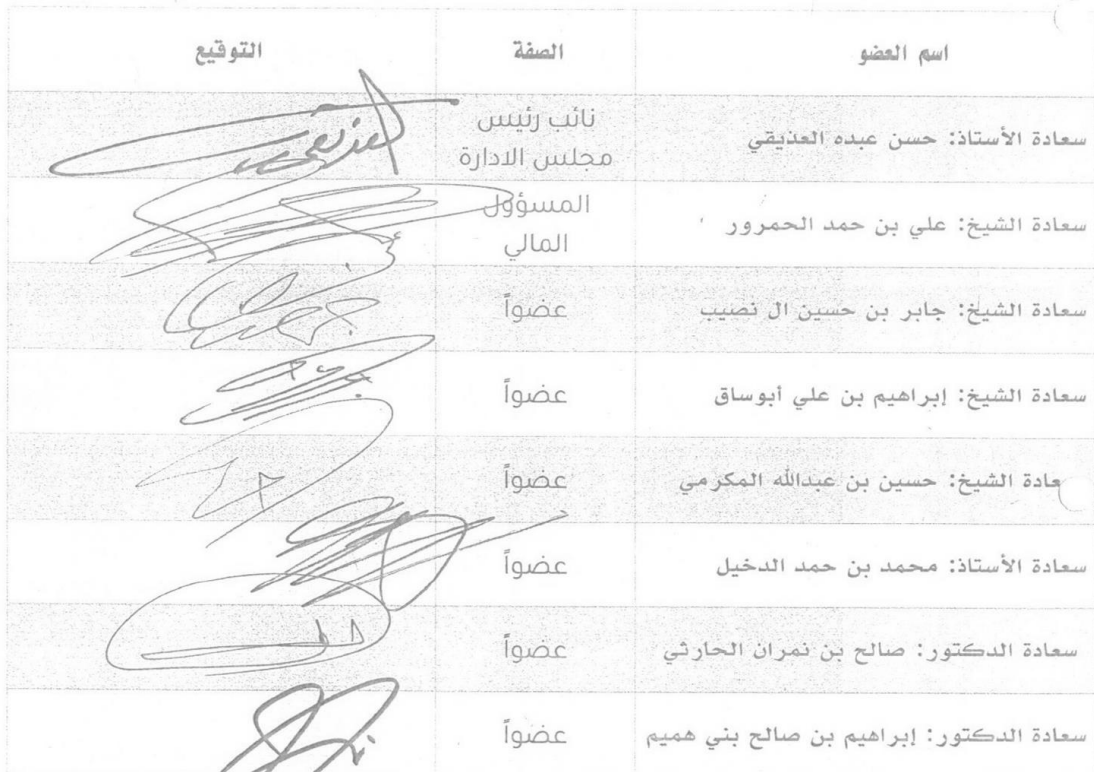 اسم العضو الصفة التوقيع
سعادة الأستاذ: حسن عبده العذيقي نائب رئيس
مجلس الادارة
سعادة الشيخ: علي بن حمد الحمرور المسؤول
المالي
سعادة الشيخ: جابر بن حسين ال نصيب عضواً
سعادة الشيخ: إبراهيم بن علي أبوساق عضواً
سعادة الشيخ: حسين بن عبدالله المكرمي عضواً
سعادة الأستاذ: محمد بن حمد الدخيل عضواً
سعادة الدكتور: صالح بن نمران الحارثي عضواً
سعادة الدكتور: إبراهيم بن صالح بني هميم عضواً